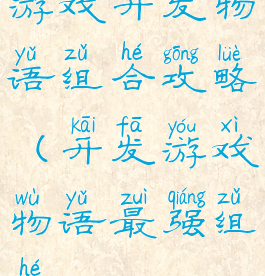 游戏开发物
yǔ zǔ hé gōng lüè
语组合攻略
kāi fā yóu xì
(开发游戏
wù yǔ zuì qiáng zǔ
物语最强组
hé